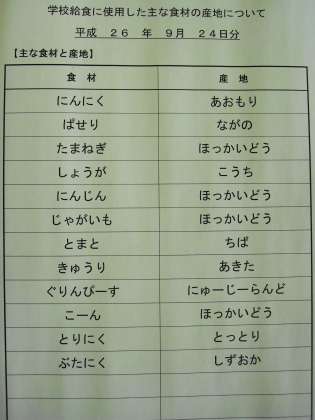 学校給食に使用した主な食材の産地について
平成 26 年 9月 24日分
【主な食材と産地】
食 材 産 地
にんにく あおもり
ぱせり ながの
たまねぎ ほっかいどう
しょうが こうち
にんじん ほっかいどう
じゃがいも ほっかいどう
とまと ちば
きゅうり あきた
ぐりんぴーす にゅーじーらんど
こーん ほっかいどう
とりにく とっとり
ぶたにく しずおか